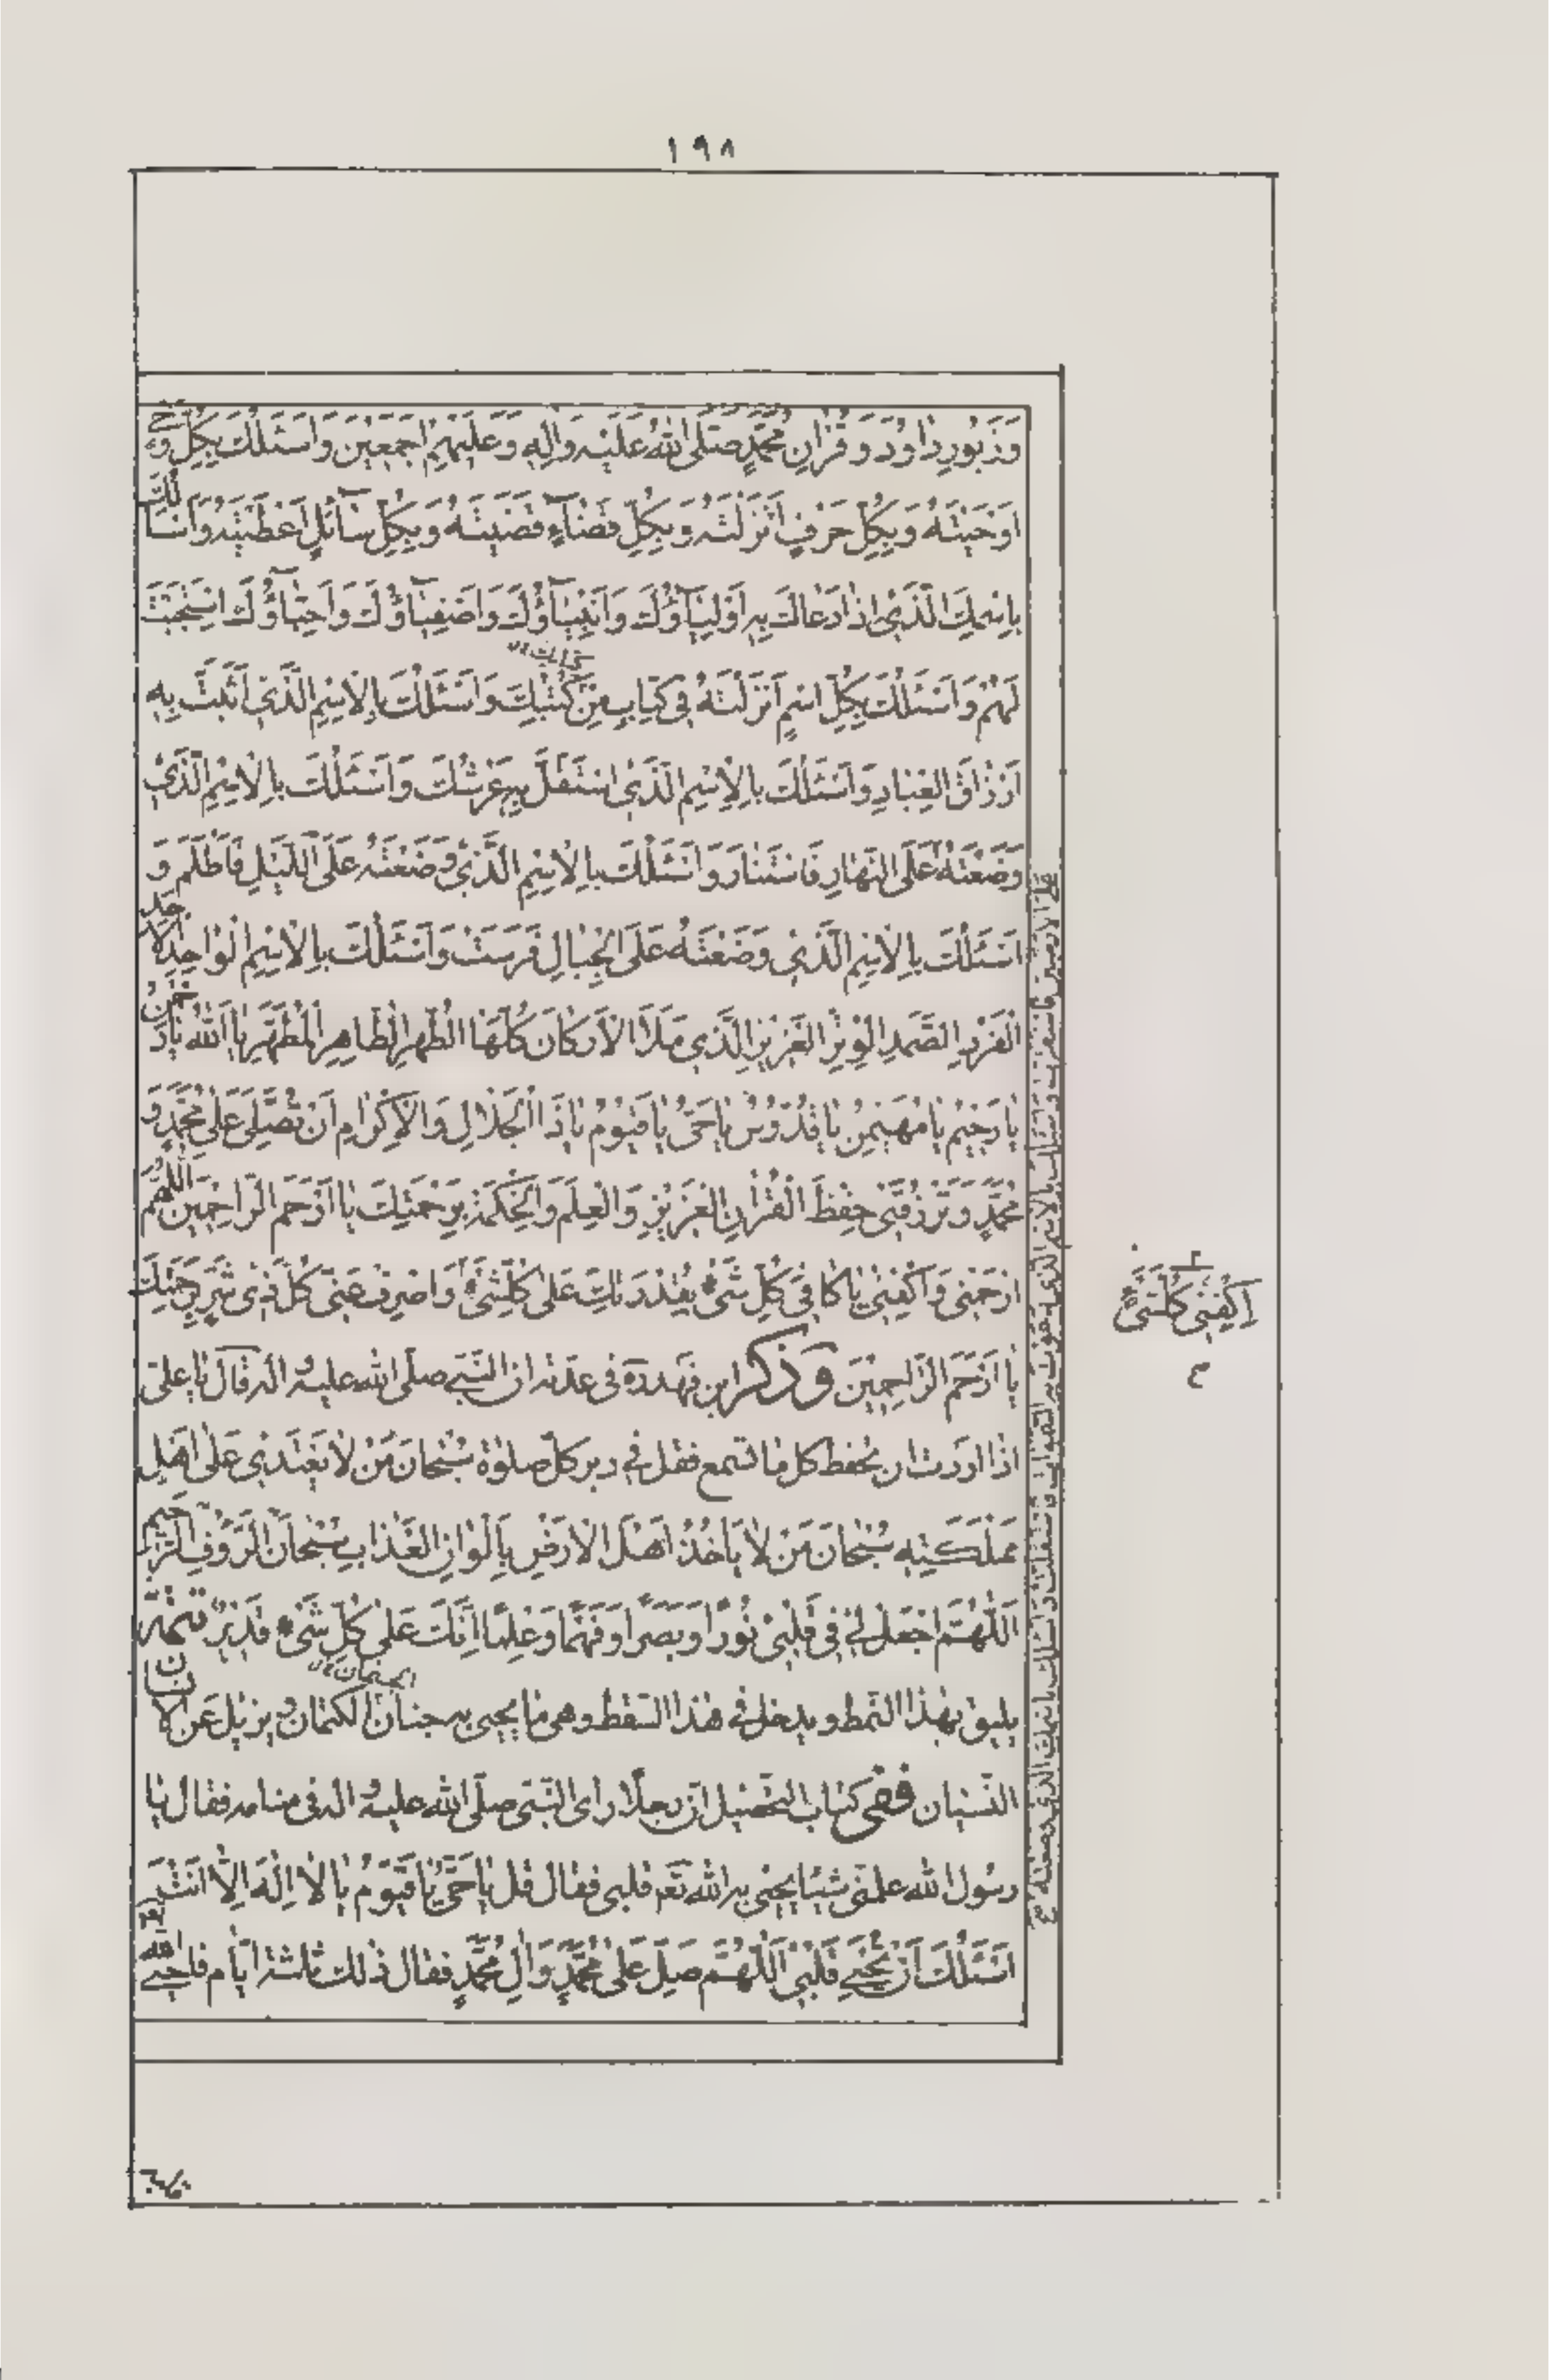 ١٩٨
وَزَبُورِ دٰاوُدَ وَ قُرْاٰنِ مُحَمَّدٍ صَلَّى اللهُ عَلَيْهِ وَاٰلِهِ وَعَلَيْهِمْ اَجْمَعِيْنَ وَاَسْئَلُكَ بِكُلِّ وَحْيٍ
اَوْحَيْتَهُ وَبِكُلِّ حَرْفٍ اَنْزَلْتَهُ وَبِكُلِّ قَضٰآءٍ قَضَيْتَهُ وَبِكُلِّ سٰآئِلٍ اَعْطَيْتَهُ وَاَسْاَلُكَ
بِاِسْمِكَ الَّذِيْ اِذٰا دَعٰاكَ بِهِ اَوْلِيٰآؤُكَ وَاَنْبِيٰآؤُكَ وَاَصْفِيٰآؤُكَ وَاَحِبّٰآؤُكَ اسْتَجَبْتَ
لَهُمْ وَاَسْئَلُكَ بِكُلِّ اسْمٍ اَنْزَلْتَهُ فِي كِتٰابٍ مِنْ كُتُبِكَ وَاَسْئَلُكَ بِالْاِسْمِ الَّذِي اَثْبَتَّ بِهِ
اَرْزٰاقَ الْعِبٰادِ وَاَسْئَلُكَ بِالْاِسْمِ الَّذِيْ اسْتَقَلَّ بِهِ عَرْشُكَ وَاَسْئَلُكَ بِالْاِسْمِ الَّذِيْ
وَضَعْتَهُ عَلَى النَّهٰارِ فَاسْتَنٰارَ وَاَسْئَلُكَ بِالْاِسْمِ الَّذِيْ وَضَعْتَهُ عَلَى اللَّيْلِ فَاَظْلَمَ وَ
اَسْئَلُكَ بِالْاِسْمِ الَّذِي وَضَعْتَهُ عَلَى الْجِبٰالِ فَرَسَتْ وَاَسْئَلُكَ بِالْاِسْمِ الْوٰاحِدِ الْاَحَدِ
الْفَرْدِ الصَّمَدِ الْوِتْرِ الْعَزِيْزِ الَّذِي مَلَاَ الْاَرْكٰانَ كُلَّهَا الطُّهْرِ الطّٰاهِرِ الْمُطَهَّرِ يٰا اَللهُ يٰا رَحْمٰنُ
يٰا رَحِيْمُ يٰا مُهَيْمِنُ يٰا قُدُّوْسُ يٰا حَيُّ يٰا قَيُّوْمُ يٰا ذَا الْجَلٰالِ وَالْاِكْرٰامِ اَنْ تُصَلِّيَ عَلٰى مُحَمَّدٍ وَ
مُحَمَّدٍ وَتَرْزُقَنِيْ حِفْظَ الْقُرْاٰنِ الْعَزِيْزِ وَالْعِلْمَ وَالْحِكْمَةَ بِرَحْمَتِكَ يٰا اَرْحَمَ الرّٰاحِمِيْنَ اَللّٰهُمَّ
ارْحَمْنِي وَاكْفِنِيْ يٰا كٰافِيَ كُلِّ شَيْءٍ بِقُدْرَتِكَ عَلٰى كُلِّ شَيْءٍ وَاصْرِفْ عَنِّيْ كُلَّ ذِيْ شَرٍّ بِرَحْمَتِكَ
يٰا اَرْحَمَ الرّٰاحِمِيْنَ وَذكر ابن فهدره في عدته ان النبي صلى الله عليه واله قال يا علي
اذا اردت ان تحفظ كل ما تسمع فقل في دبر كل صلوة سُبْحٰانَ مَنْ لٰا يَعْتَدِيْ عَلٰى اَهْلِ
مَمْلَكَتِهِ سُبْحٰانَ مَنْ لٰا يَاْخُذُ اَهْلَ الْاَرْضِ بِاَلْوٰانِ الْعَذٰابِ سُبْحٰانَ الرَّؤُفِ الرَّحِيْمِ
اَللّٰهُمَّ اجْعَلْ لِيْ فِي قَلْبِيْ نُوْرًا وَبَصَرًا وَفَهْمًا وَعِلْمًا اِنَّكَ عَلٰى كُلِّ شَيْءٍ قَدِيْرٌ تتمة
يليق بهذا النمط ويدخل في هذا السفط وهي ما يحيى به جنان الكتمان ويزيل عن الانسان
النسيان ففي كتاب التحصيل ان رجلا راى النبي صلى الله عليه واله في منامه فقال يا
رسول الله علمني شيئا يحيي به الله تع قلبي فقال قل يٰا حَيُّ يٰا قَيُّوْمُ يٰا لٰا اِلٰهَ اِلّٰا اَنْتَ
اَسْئَلُكَ اَنْ تُحْيِيَ قَلْبِيْ اَللّٰهُمَّ صَلِّ عَلٰى مُحَمَّدٍ وَاٰلِ مُحَمَّدٍ فقال ذلك ثلثة ايام فاحيى الله
عَلَى الْاَرَضِيْنَ فَاسْتَقَرَّتْ وَاَسْئَلُكَ بِالْاِسْمِ الَّذِي
اِكْفِنِيْ كُلَّ شَيْءٍ